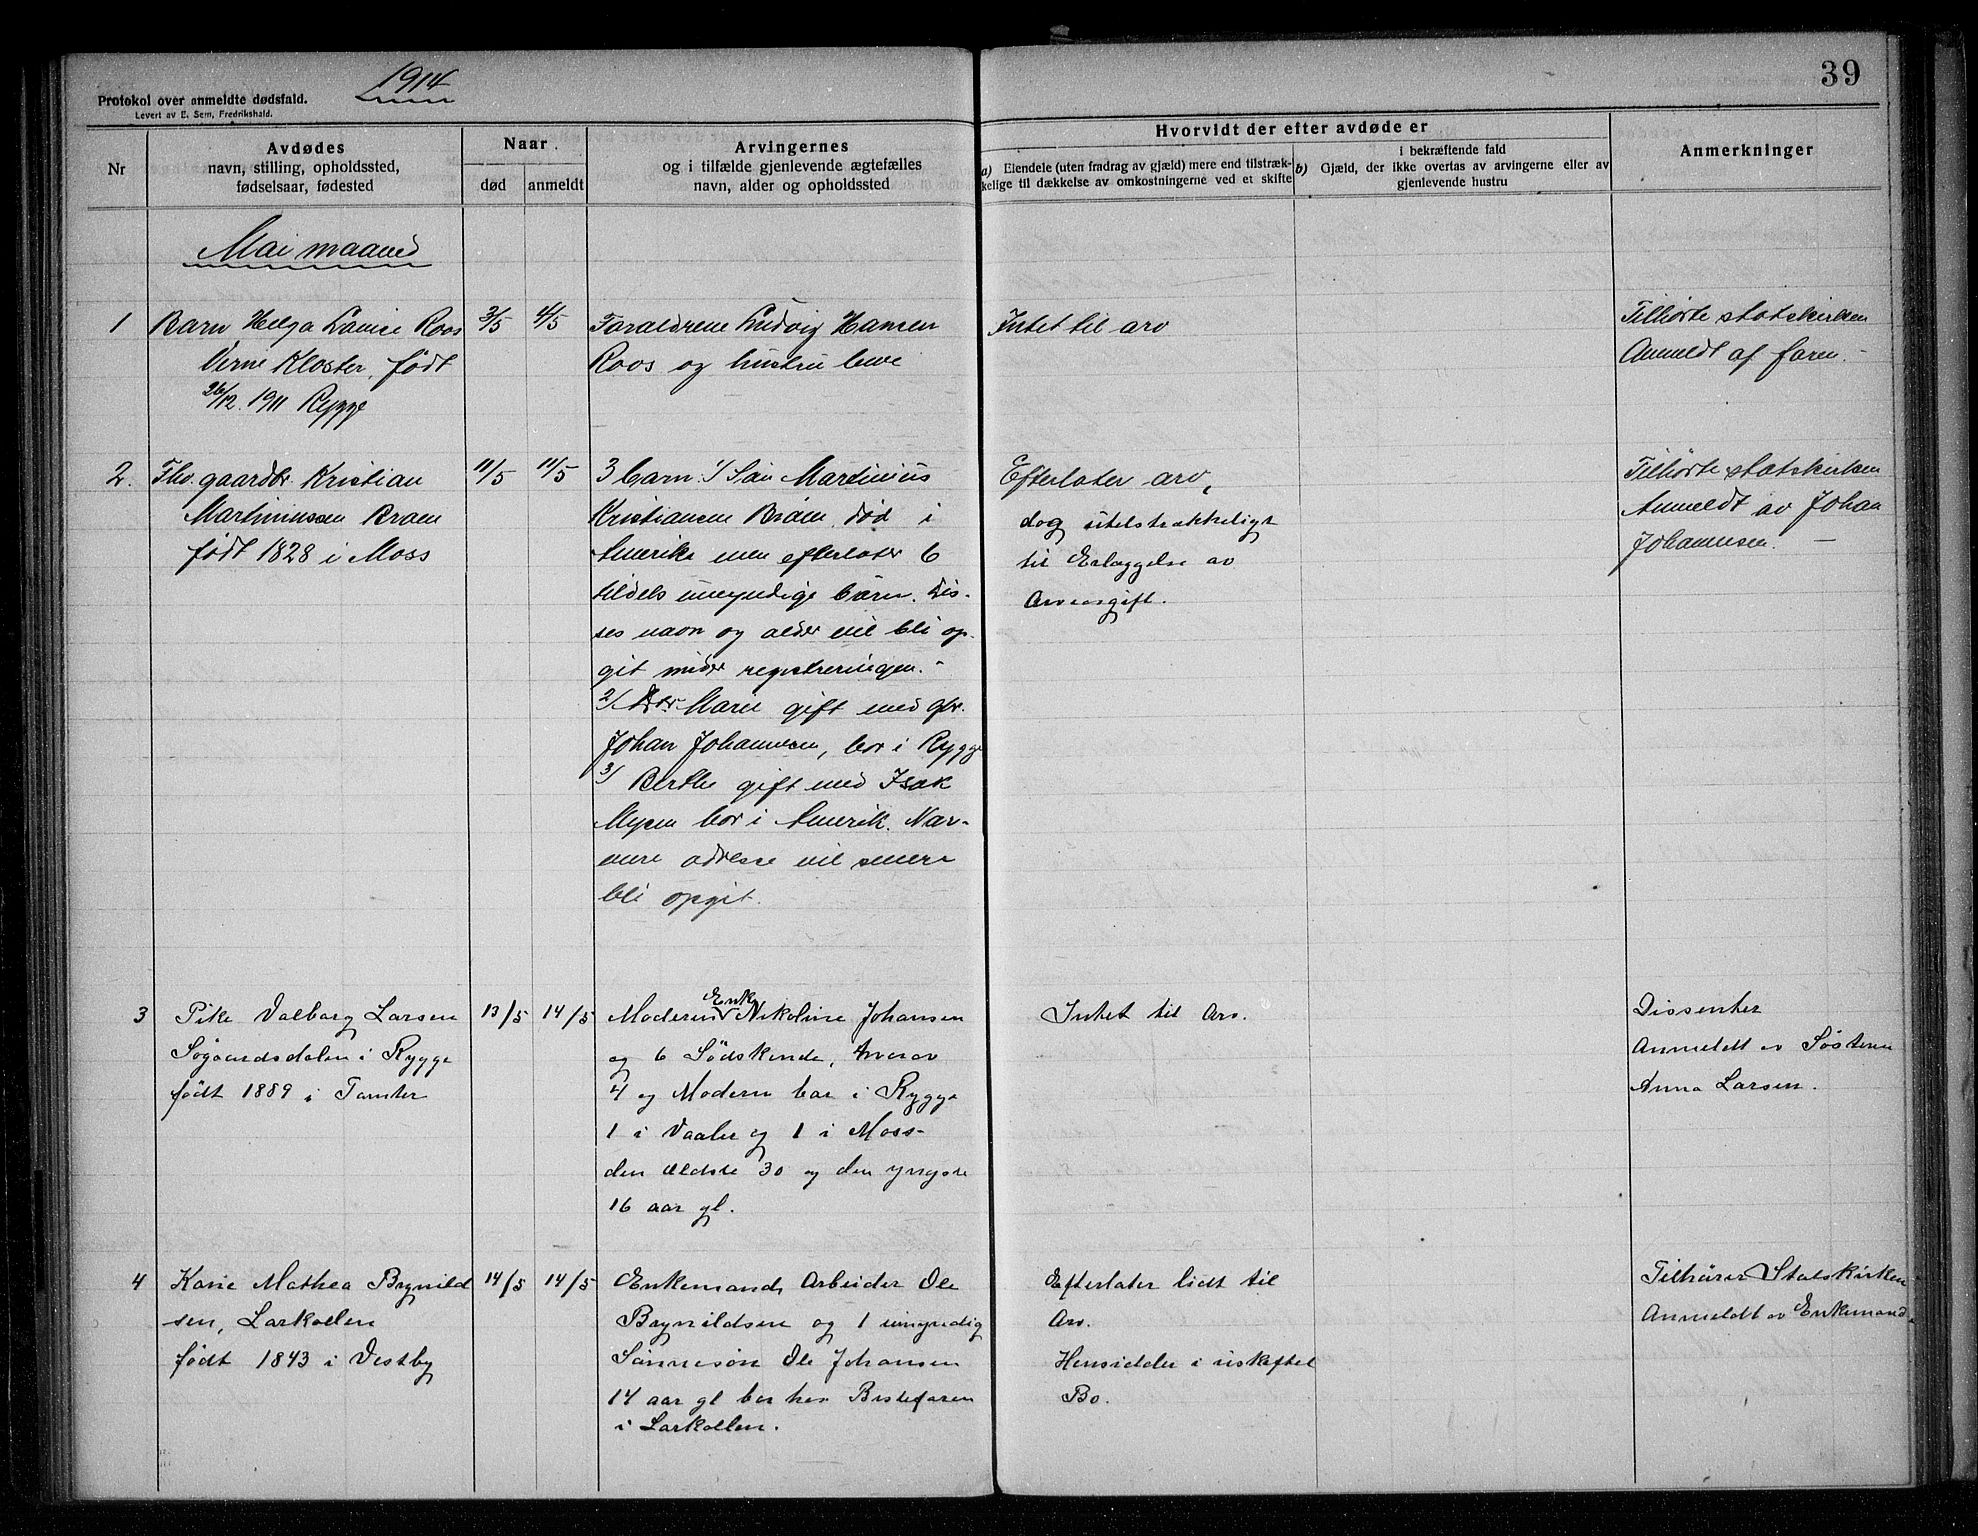 1914
39
Protokol over anmeldte dødsfald.
Levert av E. Sem, Fredrikshald.
Nr
Avdødes
navn, stilling, opholdssted,
fødselsaar, fødested
Naar
død
anmeldt
Arvingernes
og i tilfælde gjenlevende ægtefælles
navn, alder og opholdssted
Hvorvidt der efter avdøde er
a) Eiendele (uten fradrag av gjæld) mere end tilstræk-
kelige til dækkelse av omkostningerne ved et skifte
i bekræftende fald
b) Gjæld, der ikke overtas av arvingerne eller av
gjenlevende hustru
Anmerkninger
Mai maaned
1
Barn Helga Lovise Roos
Verne Kloster, født
26/12. 1911 Rygge
3/5
4/5
Foraldrene Ludvig Hansen
Roos og hustru leve
Intet til arv
Tilhørte statskirken
Anmeldt af faren. -
2.
Fhv. gaardbr. Kristian
Martinussen Braen
født 1828 i Moss
11/5
11/5
3 barn: 1/ Søn Martinius
Kristiansen Bráen, død i
Amerika men efterlater 6
tildels umyndige børn. Dis-
ses navn og alder vil bli op-
git under registreringen. -
2/ Dtr Marie gift med gbr.
Johan Johannesen, bor i Rygge
3/ Berthe gift med Isak
Mysen bor i Amerik. Nær-
mere adresse vil senere
bli opgit.
Efterlater arv,
dog utilstrækkeligt
til Erlæggelse av
Arveavgift.
Tilhørte statskirken
Anmeldt av Johan
Johannesen. -
3
Pike Valborg Larsen
Sogaardsdalen i Rygge
født 1889 i Tomter
13/5
14/5
Moderen Enke Nikoline Johansen
og 6 Sødskende, hvorav
4 og Modern bor i Rygge
1 i Vaaler og 1 i Moss-
den ældste 30 og den yngste
16 aar gl.
Intet til Arv.
Dissenter
Anmeldt av Søsteren
Anna Larsen.
4
Karie Mathea Brynild
sen, Larkollen
født 1843 i Vestby
14/5
14/5
Enkemand Arbeider Ole
Brynildsen og 1 umyndig
Sønnesøn Ole Johansen
14 aar gl bor hos Bestefaren
i Larkollen.
Efterlater lidt til
Arv.
Hensidder i uskiftet
Bo.
Tilhører Statskirken
Anmeldt av Enkemand.